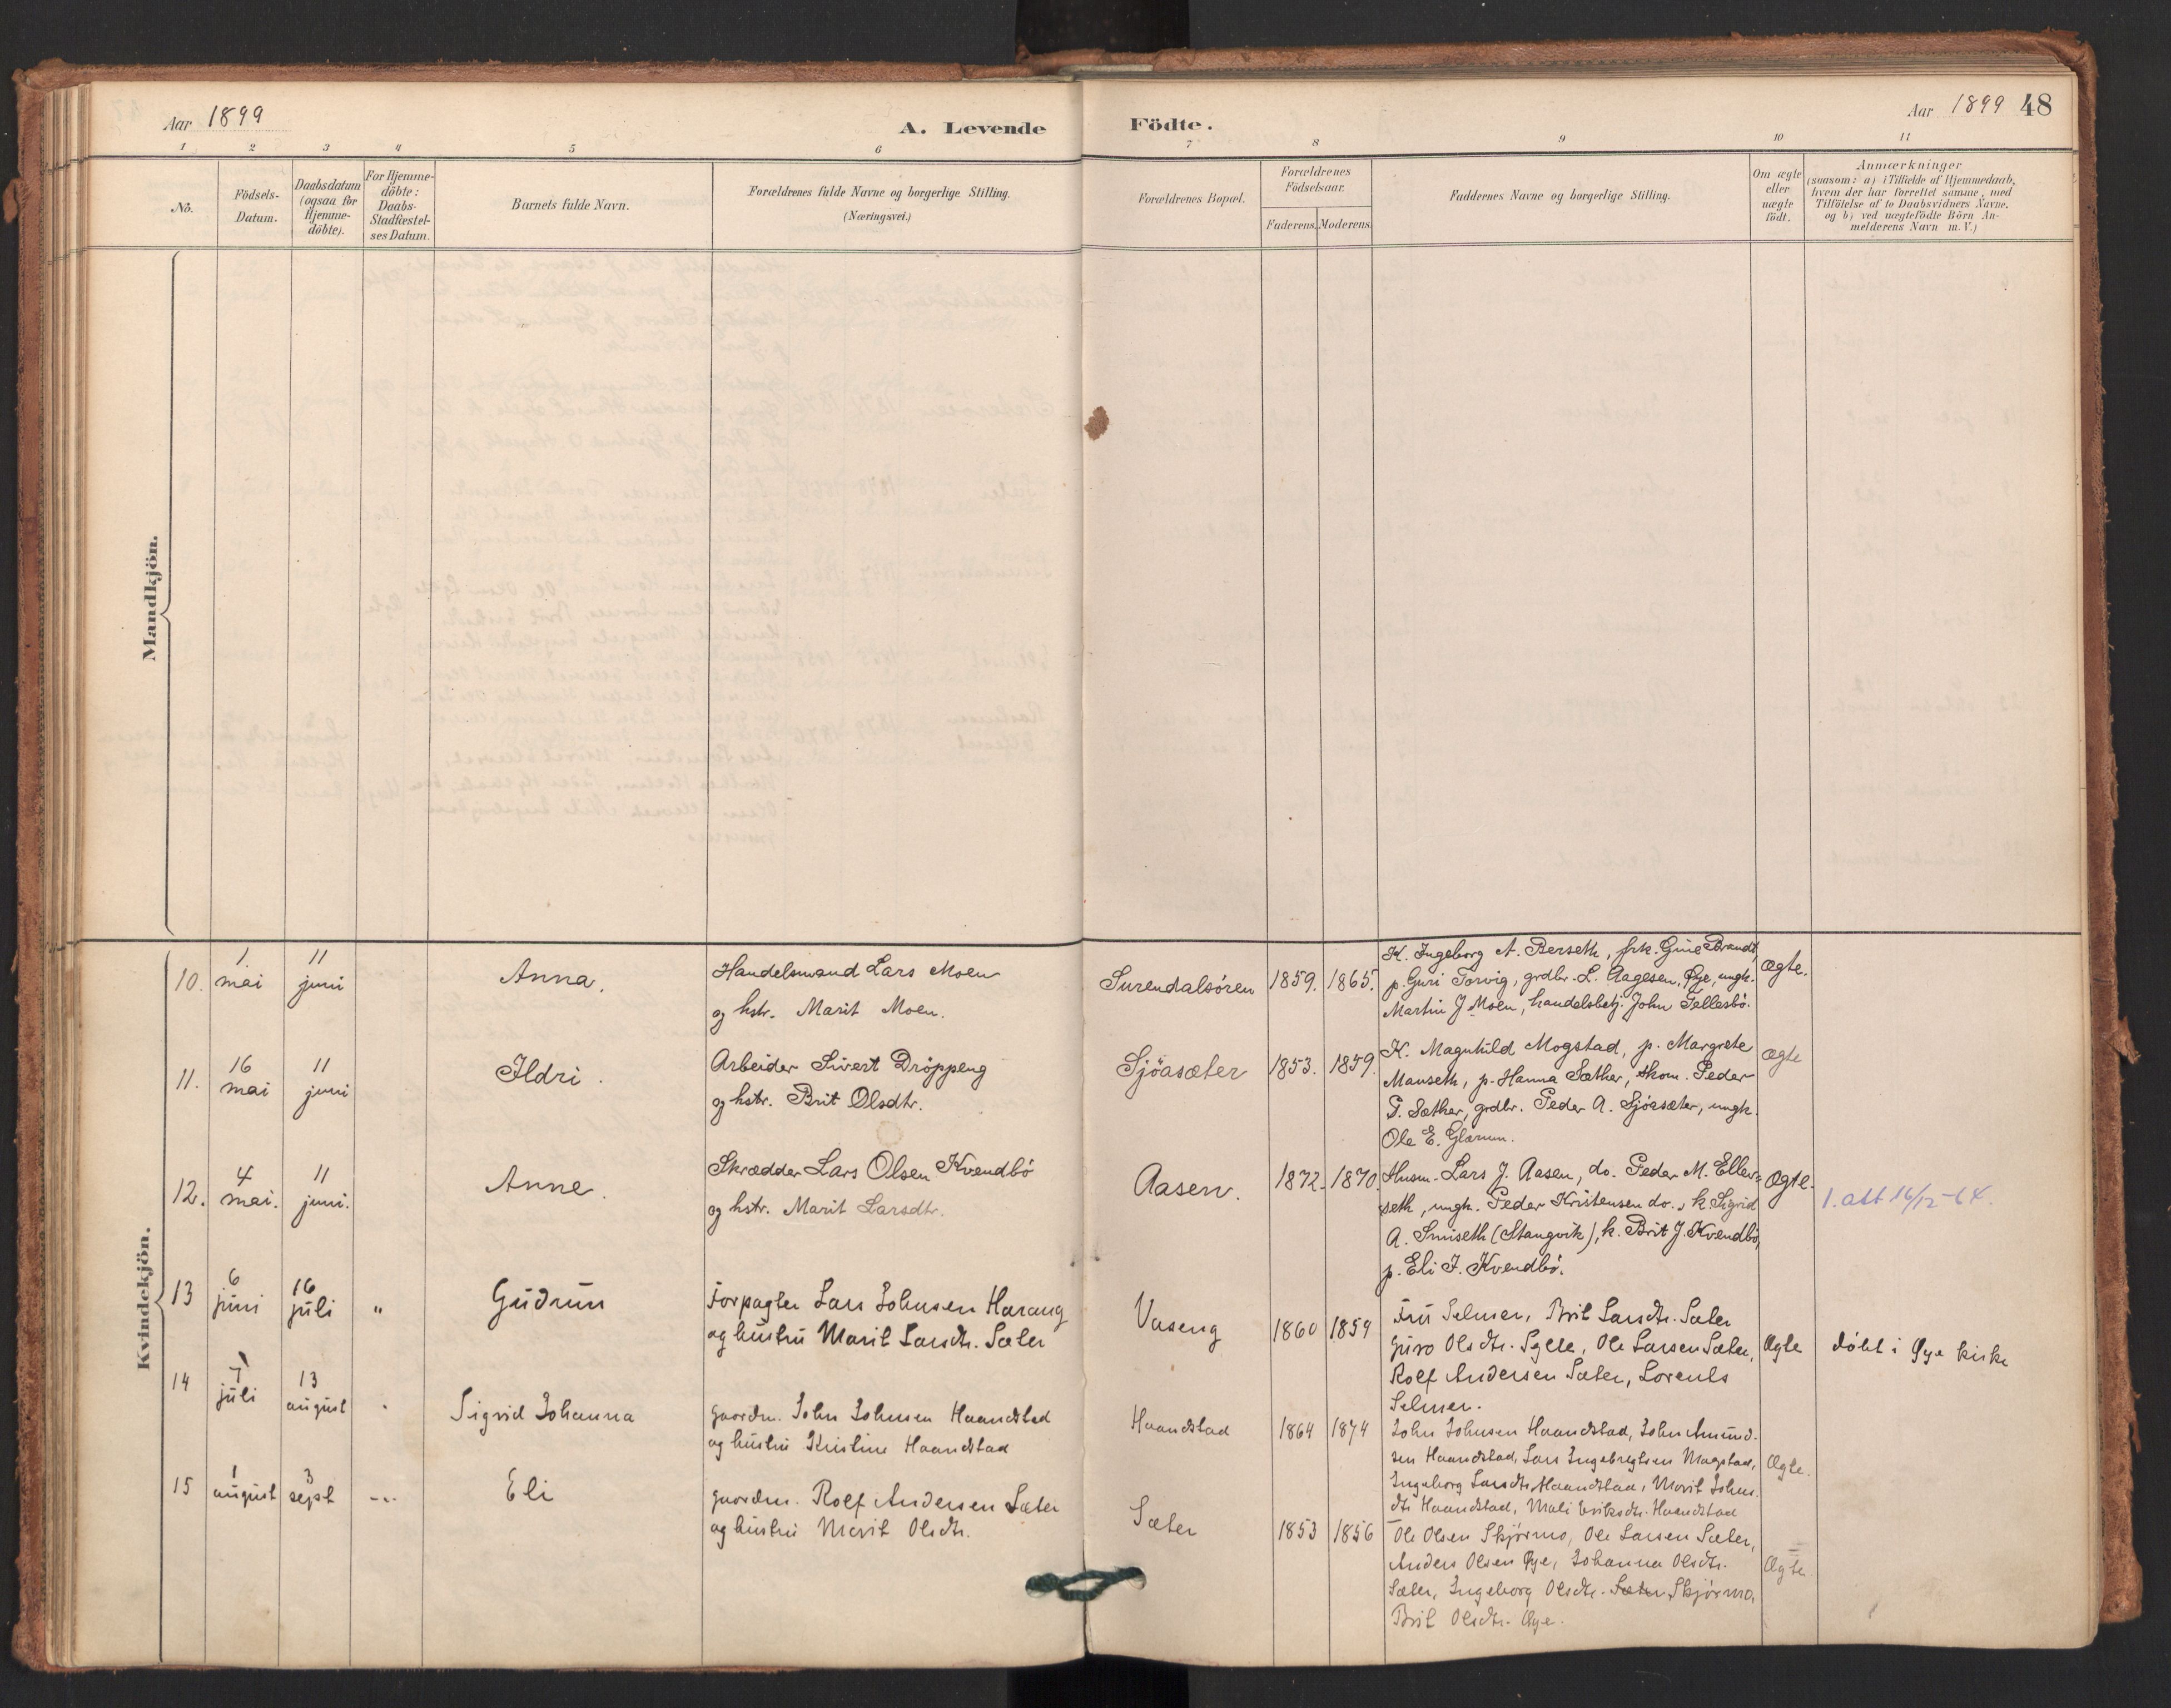 Aar 1899
A. Levende Födte.
Aar 1899 48
1 2 3 4 5 6 7 8 9 10 11
No.
Födsels-Datum.
Daabsdatum (ogsaa for Hjemme-döbte).
For Hjemme-döbte: Daabs-Stadfæstel-ses Datum.
Barnets fulde Navn.
Forældrenes fulde Navne og borgerlige Stilling.
(Næringsvei.)
Forældrenes Bopæl.
Forældrenes Födselsaar.
Faderens. Moderens.
Faddernes Navne og borgerlige Stilling.
Om ægte eller uægte födt.
Anmærkninger
(saasom: a) i Tilfælde af Hjemmedaab,
hvem der har forrettet samme, med
Tilföielse af to Daabsvidners Navne.
og b) ved uægtefödte Börn An-
melderens Navn m.V.)
Mandkjön.
Kvindekjön.
10. 1 mai 11 juni Anna.
Handelsmand Lars Moen
og hstr. Marit Moen.
Surendalsören 1859. 1865.
K. Ingeborg A. Berseth, frk. Gine Brandt,
p. Guri Torvig, grdbr. L. Aagesen, Øye, ungk.
Martin J Moen, handelsbetj. John Tellesbö.
Ægte.
11. 16 mai 11 juni Ildri.
Arbeider Sivert Dröppeng
og hstr. Brit Olsdtr.
Sjöasæter 1853. 1859.
K. Magnhild Mogstad, p. Margrete
Mauseth, p. Hanna Sæther, skom. Peder
P. Sæther, grdbr. Peder A. Sjöasæter, ungk.
Ole E. Glærum.
Ægte
12. 4 mai. 11 juni. Anne.
Skrædder Lars Olsen Kvendbö
og hstr. Marit Larsdtr.
Aasen. 1872. 1870.
Husm. Lars J. Aasen, do. Peder M. Ellev=
seth, ungk. Peder Kristensen do., k. Sigrid
A. Smiseth (Stangvik), k. Brit J. Kvendbö,
p. Eli I. Kvendbö.
Ægte.
1. att 16/12-64.
13 6 juni 16 juli " Gudrun
Forpagter Lars Johnsen Harang
og hustru Marit Larsdtr. Sæter
Vaseng 1860 1859
Fru Selmer, Brit Larsdtr. Sæter
Guro Olsdtr. Sylte, Ole Larsen Sæter,
Rolf Andersen Sæter, Lorents
Selmer.
Ægte
döbt i Øye kirke
14 7 juli 13 august Sigrid Johanna
gaardm. John Johnsen Haandstad
og hustru Kristine Haandstad
Haandstad 1864 1874
John Johnsen Haandstad, John Amund-
sen Haandstad, Lars Ingebregtsen Magstad,
Ingeborg Larsdtr Haandstad, Marit Johns-
dtr Haandstad, Mali Eriksdtr. Haandstad
Ægte.
15 1 august 3 sept Eli
gaardm. Rolf Andersen Sæter
og hustru Marit Olsdtr.
Sæter 1853 1856
Ole Olsen Skjörmo, Ole Larsen Sæter,
Anders Olsen Øye, Johanna Olsdtr.
Sæter, Ingeborg Olsdtr. Sæter Skjörmo,
Brit Olsdtr. Øye.
Ægte.